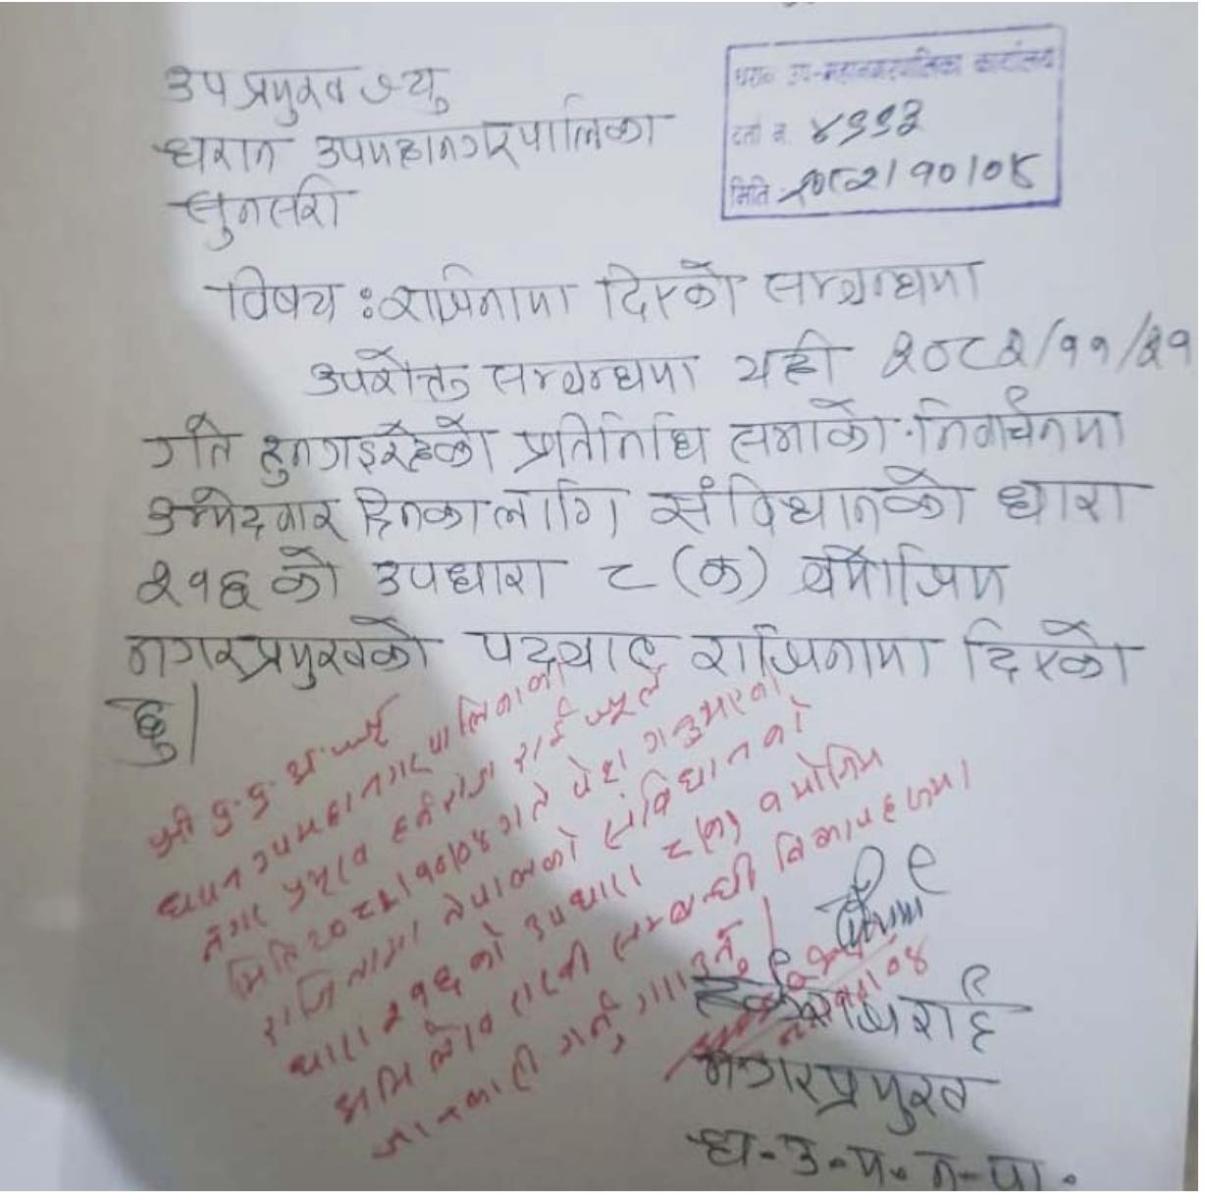 उपप्रमुखज्यु
धरान उपमहानगरपालिका
सुनसरी
धरान उप-महानगरपालिका कार्यालय
दर्ता नं. ४११३
मिति २०८२/१०/०४
विषय : राजिनामा दिएको सम्बन्धमा
उपरोक्त सम्बन्धमा यही २०८२/११/२१
गते हुनगइरहेको प्रतिनिधि सभाको निर्वाचनमा
उम्मेदवार हिनकालागि संविधानको धारा
२१६ को उपधारा ८ (क) बमोजिम
नगरप्रमुखको पदबाट राजिनामा दिएको
छु।
श्री प्र.प्र.अ.ज्यू
धरान उपमहानगरपालिकाका
नगर प्रमुख हर्कराज राई ज्यूले
मिति २०८२।१०।०४ गते पेश गर्नुभएको
राजिनामा नेपालको संविधानको
धारा २१६ को उपधारा ८(क) बमोजिम
अभिलेख राखी सम्बन्धी निकायहरुमा
जानकारी गर्नु गराउनु।
हर्कराज राई
नगरप्रमुख
ध.उ.म.न.पा.